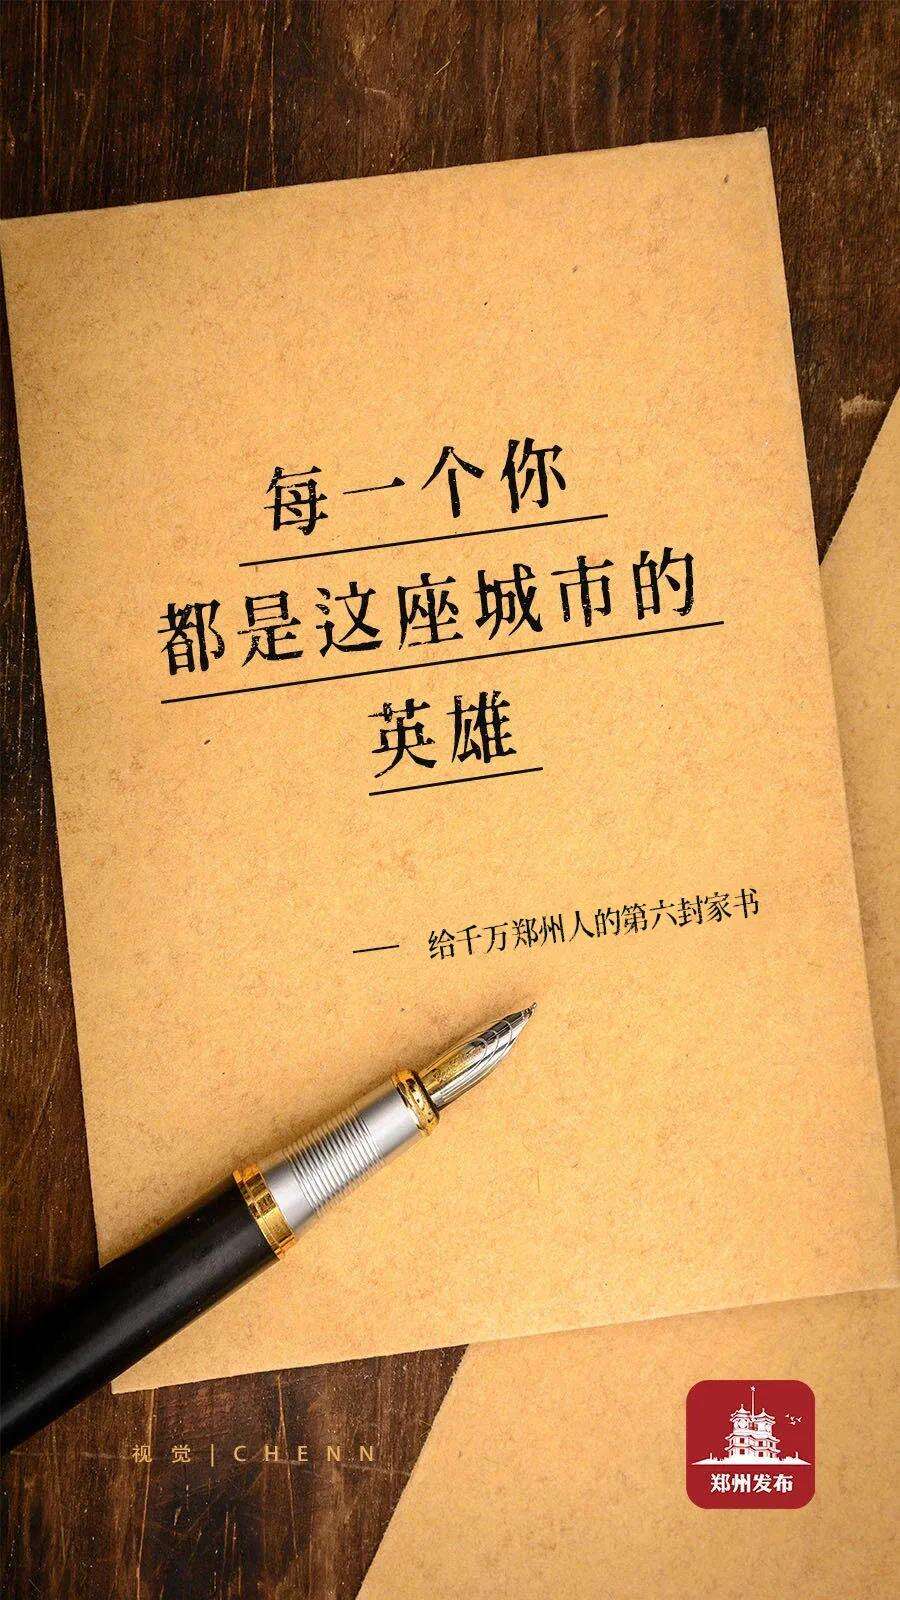 每一个你
都是这座城市的
英雄
—— 给千万郑州人的第六封家书
视觉|CHENN
郑州发布